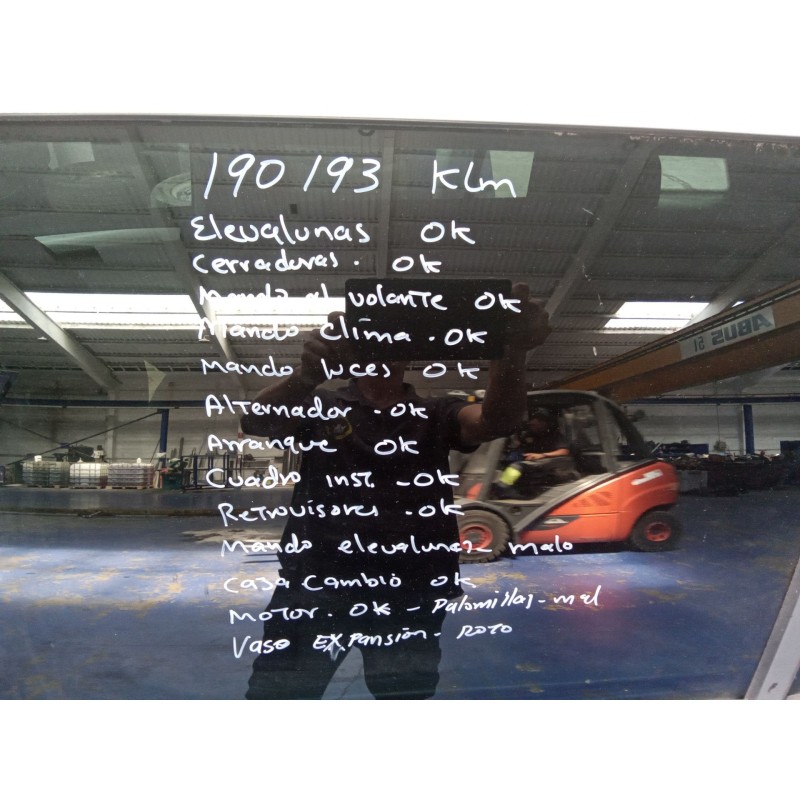 190193 Klm
Elevalunas OK
Cerraduras. OK
Mando al volante OK
Mando Clima. OK
Mando luces OK
Alternador. OK
Arranque OK
Cuadro inst. - OK
Retrovisores. OK
Mando elevalunas malo
Caja Cambio OK
Motor. OK - Palomillas - mal
Vaso Expansión - Roto
ABUS 61